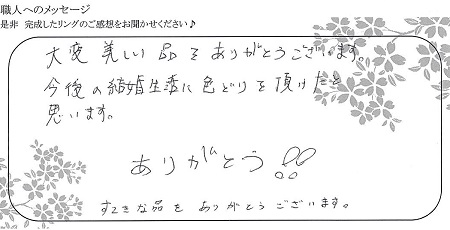 職人へのメッセージ
是非 完成したリングのご感想をお聞かせください♪
大変美しい品をありがとうございます。
今後の結婚生活に色どりを頂けたと
思います。
ありがとう!!
すてきな品をありがとうございます。